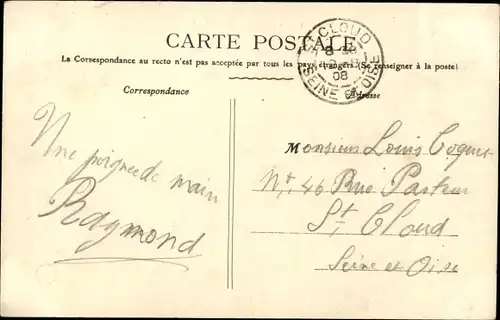 CARTE POSTALE
La Correspondance au recto n'est pas acceptée par tous les pays étrangers (Se renseigner à la poste)
ST CLOUD
08
SEINE ET OISE
Correspondance
Adresse
Une poignée de main
Raymond
Monsieur Louis Coquet
No. 46 Rue Pasteur
St Cloud
Seine et Oise